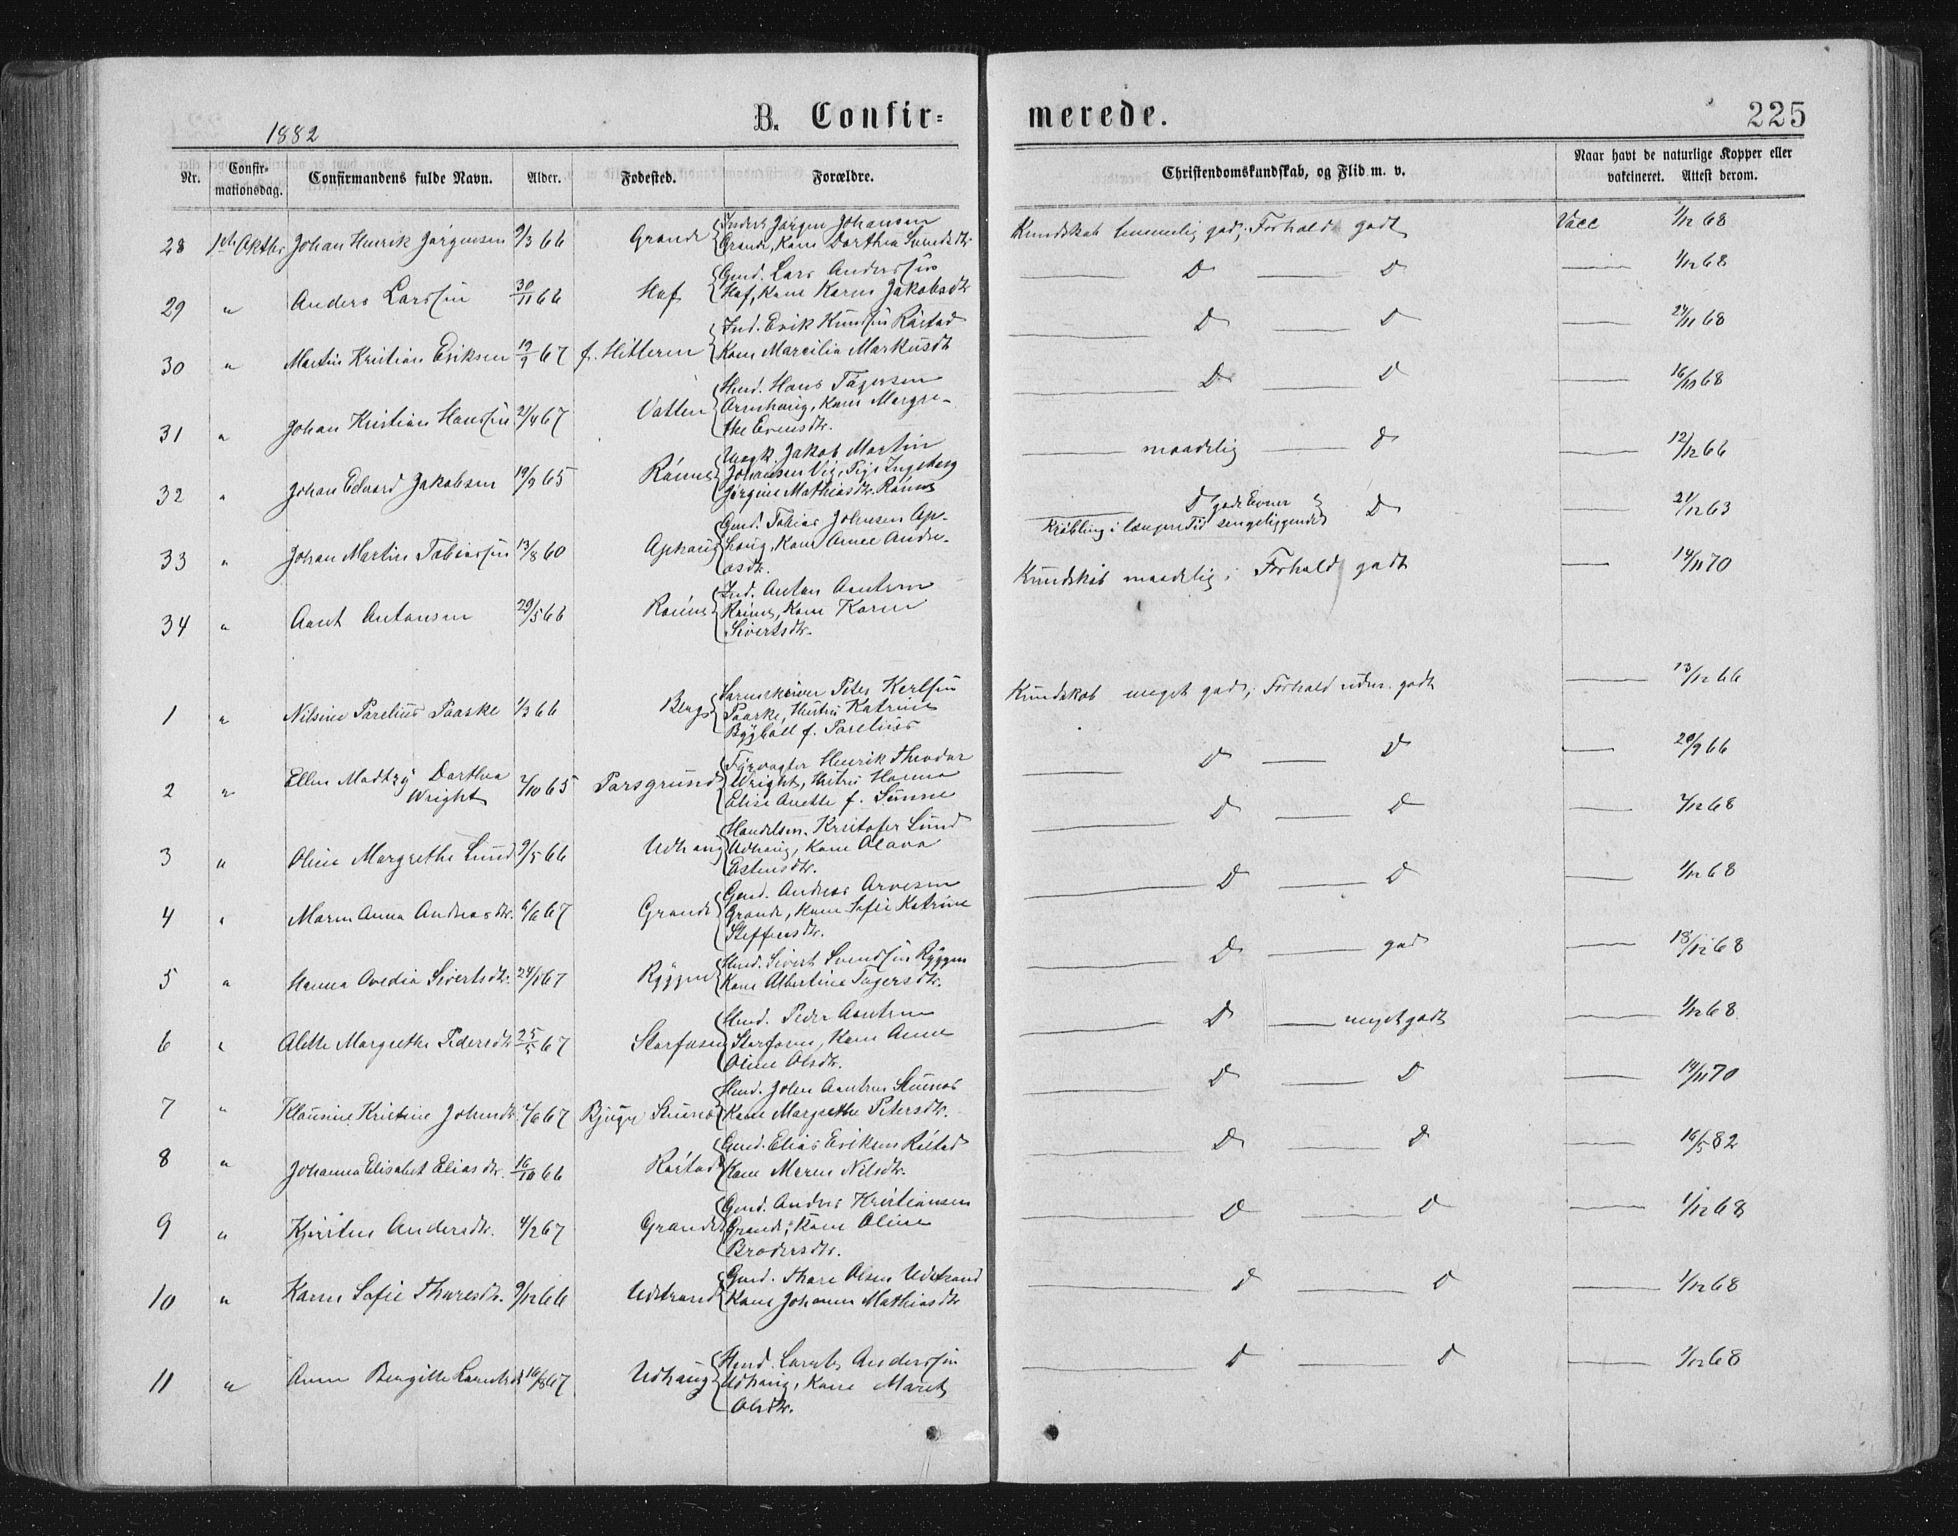 1882
B. Confir-
merede.
225
Nr.
Confir-
mationsdag.
Confirmandens fulde Navn.
Alder.
Fødested.
Forældre.
Christendomskundskab, og Flid m. v.
Naar havt de naturlige Kopper eller
vakcineret. Attest derom.
28 1ste Oktbr Johan Henrik Jørgensen 9/3 66 Grande Jørgen Johansen
Grande, Kone Dorthea
Kundskab temmelig god; Forhold godt Vacc 1/12 68
29 " Anders Larssen 30/11 66 Hof Gmd. Lars Anderssen
Hof, Kone Karen Jakobsdtr
D D 1/12 68
30 " Martin Kristian Eriksen 19/9 67 f. Hitteren Ind. Erik Knutsen Røstad
Kone Marcilia Markusdt
D D 24/11 68
31 " Johan Kristian Hanssen 21/4 67 Vatten Hmd. Hans
Kone Margre-
the Evensdtr.
D D 16/11 68
32 " Johan Edvard Jakobsen 19/9 65 Rømes Ungk. Jakob Martin
Johansen Vig, Pige Ingeborg
Jørgine Mathiasdtr. Rømes
maadelig D 12/12 66
33 " Johan Martin Tobiassen 13/8 60 Ophaug Gmd. Tobias Johnsen Op-
haug, Kone Anne Andre-
asdtr.
D gode Evner og D
Krøbling i længere Tid sengeliggende
21/12 63
34 " Aant Antonsen 29/5 66 Rømes Ind. Anton Aantsen
Rømes, Kone Karen
Sivertsdtr.
Kundskab maadelig; Forhold godt 14/11 70
1 " Nilsine Parelius Paaske 1/3 66 Berg Sorenskriver Peter
Paaske, Hustru Katrine
f. Parelius
Kundskab meget god; Forhold udm. godt 13/12 66
2 " Ellen Dorthea
Wright 2/10 65 Porsgrund Fyrvogter Henrik Theodor
Wright, Hustru Hanna
Elise Anette f. Sunne
D D 20/9 66
3 " Oline Margrethe Lund 9/5 66 Udhaug Handelsm. Kristofer Lund
Udhaug, Kone Olava
Estensdtr.
D D 2/12 68
4 " Maren Anna Andreasdtr. 6/6 67 Grande Gmd. Andreas Arnesen
Grande, Kone Sofie Katrine
Steffensdtr.
D D 1/12 68
5 " Hanna Ovedia Sivertsdtr. 24/1 67 Ryggen Hmd. Sivert Svendsen Ryggen
Kone Albertine
D god 18/12 68
6 " Alette Margrethe Pedersdtr 25/5 67 Storfosen Hmd. Peder Aantsen
Storfosen, Kone Anne
Oline Olsdtr.
D meget godt 1/12 68
7 " Klausine Kristine Johnsdtr 2/6 67 Bjugn Hmd. John Aantsen
Kone Margrethe Petersdtr.
D D 14/11 70
8 " Johanna Elisabet Eliasdtr. 16/10 66 Røstad Gmd. Elias Eriksen Røstad
Kone Maren Nilsdtr.
D D 16/5 82
9 " Kjersten Andersdtr. 4/2 67 Grande Gmd. Anders Kristiansen
Grande, Kone Oline
Brodersdtr.
D D 1/12 68
10 " Karen Sofie Thoresdtr. 9/12 66 Udstrand Gmd. Thore Olsen Udstrand
Kone Johanna Mathiasdtr
D D 1/12 68
11 " Anne Bergitte 16/8 67 Udhaug Hmd. Anderssen
Udhaug, Kone Marit
Olsdtr.
D D 1/12 68